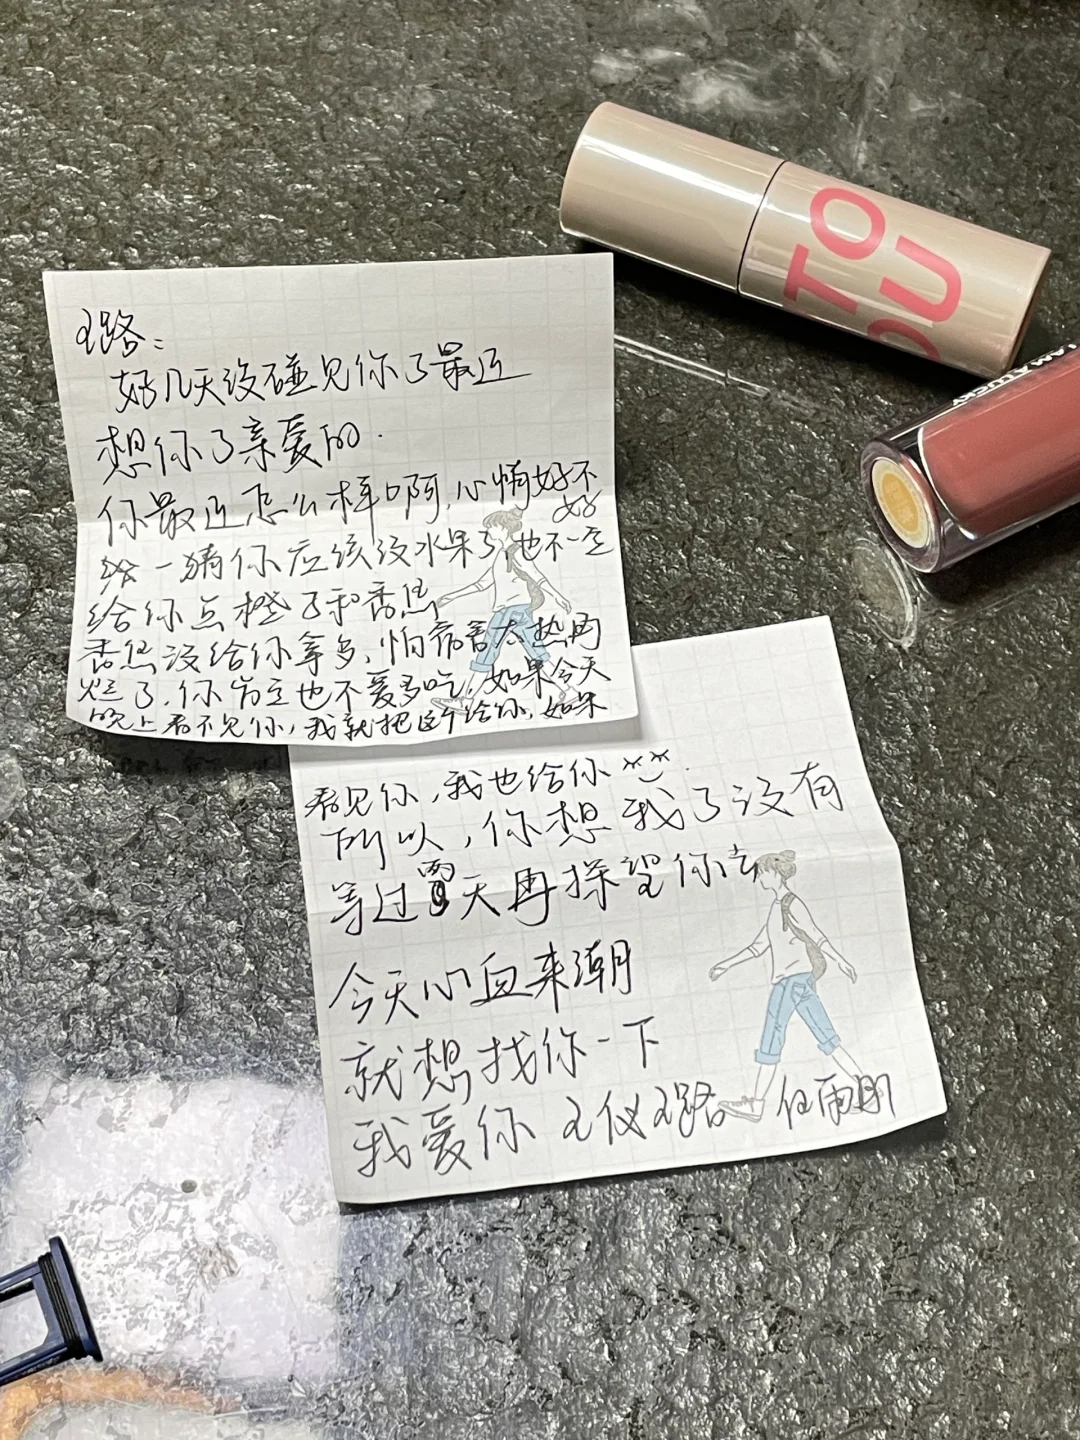 好几天没碰见你了最近
想你了亲爱的.
你最近怎么样啊,心情好不
好
猜你应该没水果了也不一定
给你点橙子和香蕉
香蕉没给你拿多,怕宿舍太热两
烂了,你肯定也不爱多吃,如果今天
晚上看不见你,我就把这个给你,如果
看见你,我也给你
所以,你想我了没有
等过两天再探望你去
今天心血来潮
就想找你一下
我爱你
TO
OU
I AM A LUCKY